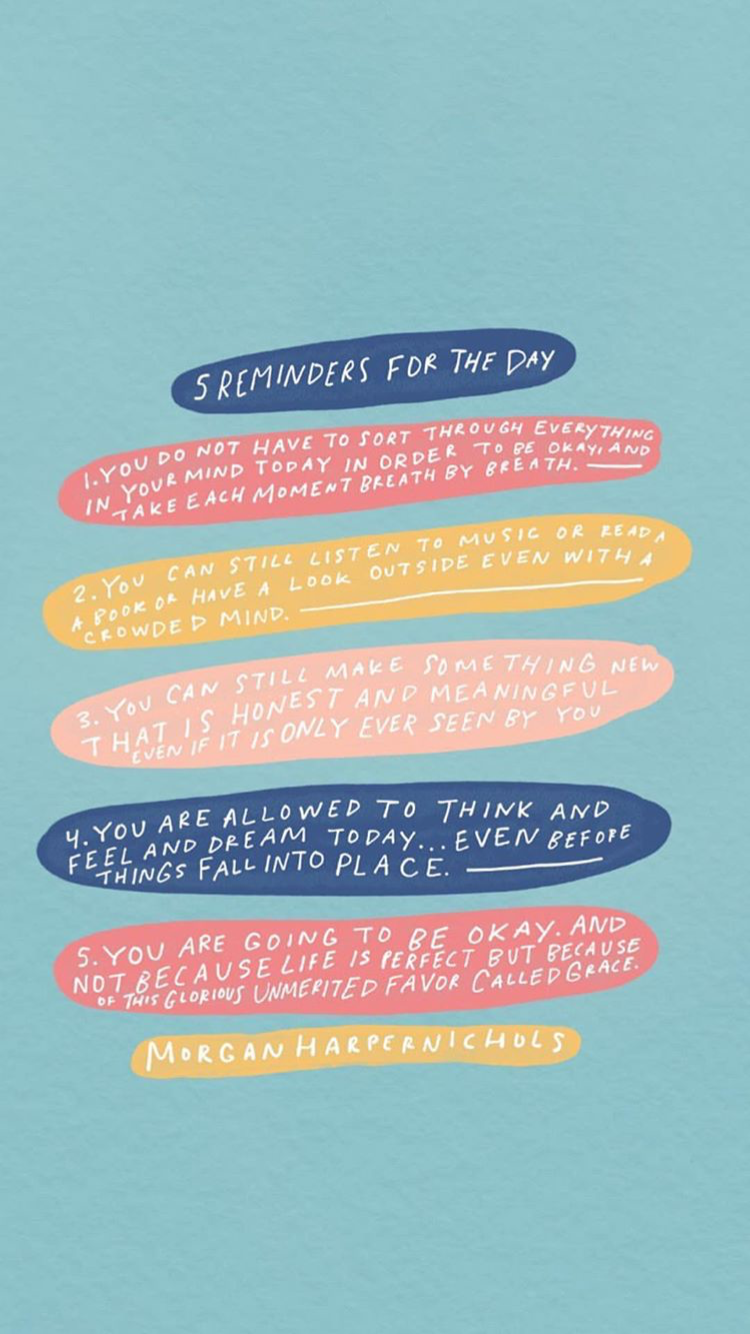 5 REMINDERS FOR THE DAY
1. YOU DO NOT HAVE TO SORT THROUGH EVERYTHING
IN YOUR MIND TODAY IN ORDER TO BE OKAY, AND
TAKE EACH MOMENT BREATH BY BREATH.
2. YOU CAN STILL LISTEN TO MUSIC OR READ A
A BOOK OR HAVE A LOOK OUTSIDE EVEN WITH A
CROWDED MIND.
3. YOU CAN STILL MAKE SOMETHING NEW
THAT IS HONEST AND MEANINGFUL
EVEN IF IT IS ONLY EVER SEEN BY YOU
4. YOU ARE ALLOWED TO THINK AND
FEEL AND DREAM TODAY... EVEN BEFORE
THINGS FALL INTO PLACE.
5. YOU ARE GOING TO BE OKAY. AND
NOT BECAUSE LIFE IS PERFECT BUT BECAUSE
OF THIS GLORIOUS UNMERITED FAVOR CALLED GRACE.
MORGAN HARPER NICHOLS